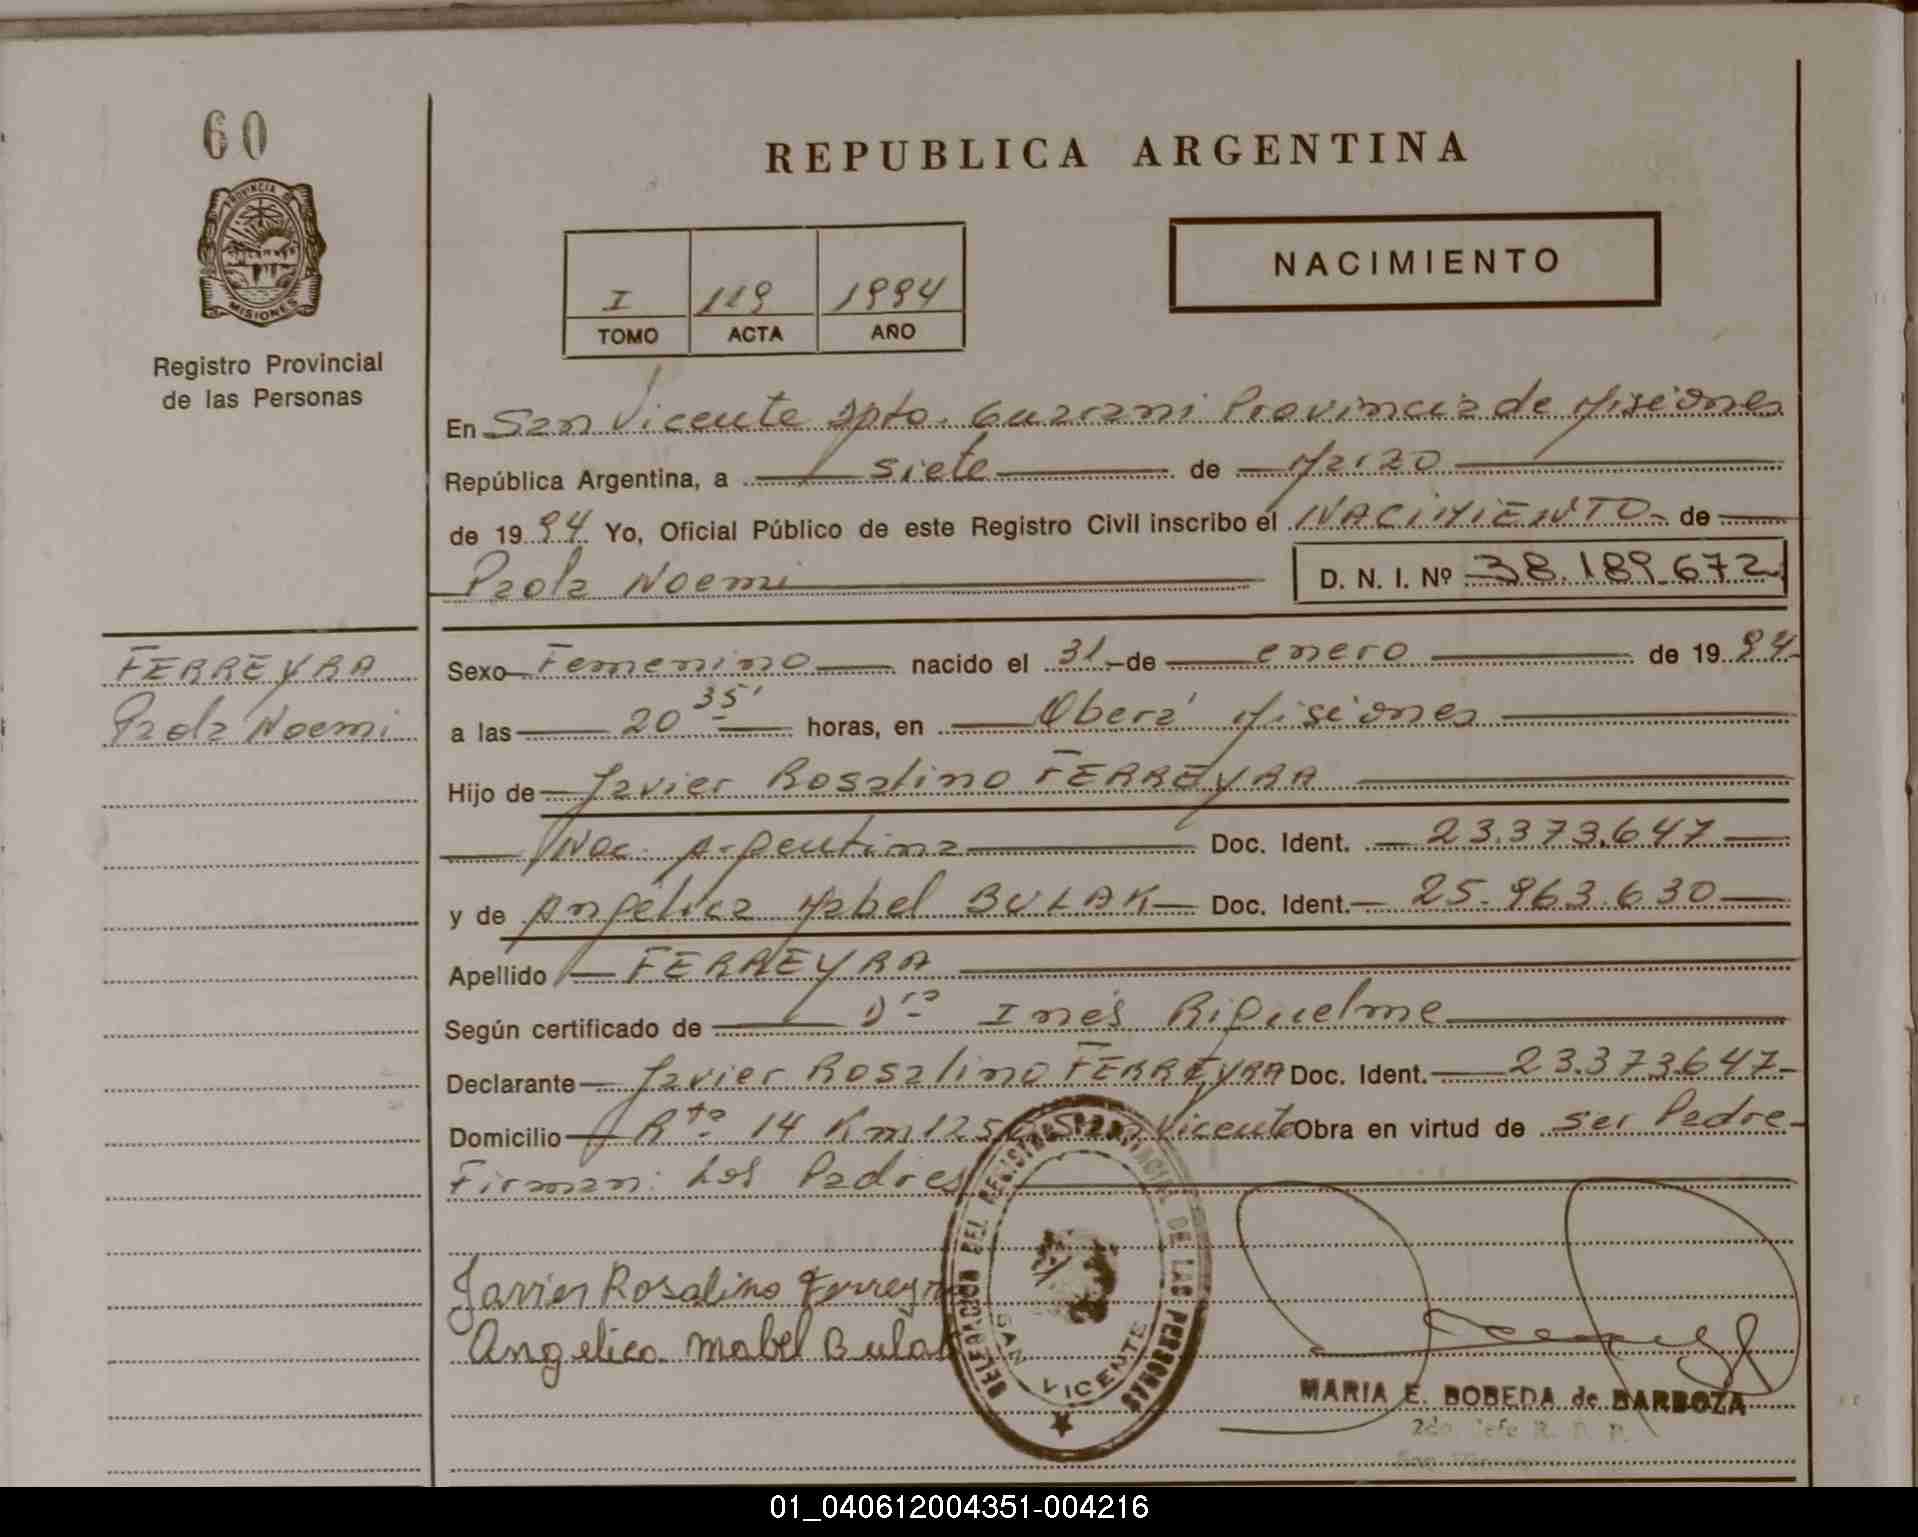 60
REPUBLICA ARGENTINA
NACIMIENTO
PROVINCIA DE
MISIONES
I 119 1994
TOMO ACTA AÑO
Registro Provincial
de las Personas
En San Vicente Dpto. Guarani Provincia de Misiones
República Argentina, a siete de Marzo
de 1994 Yo, Oficial Público de este Registro Civil inscribo el NACIMIENTO de
Paola Noemi D. N. I. Nº 38.189.672
FERREYRA
Paola Noemi
Sexo Femenino nacido el 31 de enero de 1994
a las 20 35' horas, en Oberá Misiones
Hijo de Javier Rosalino FERREYRA
Nac. Argentina Doc. Ident. 23.373.647
y de Angélica Mabel BULAK Doc. Ident. 25.963.630
Apellido FERREYRA
Según certificado de Dra Inés Riquelme
Declarante Javier Rosalino FERREYRA Doc. Ident. 23.373.647
Domicilio Rta 14 Km 125 Vicente Obra en virtud de ser Padre
Firman: Los Padres
Javier Rosalino Ferreyra
Angelica mabel Bulak
DELEGACION DEL REGISTRO PROVINCIAL DE LAS PERSONAS
SAN VICENTE
MARIA E. BOBEDA de BARBOZA
2do. Jefe R. P. P.
01_040612004351-004216